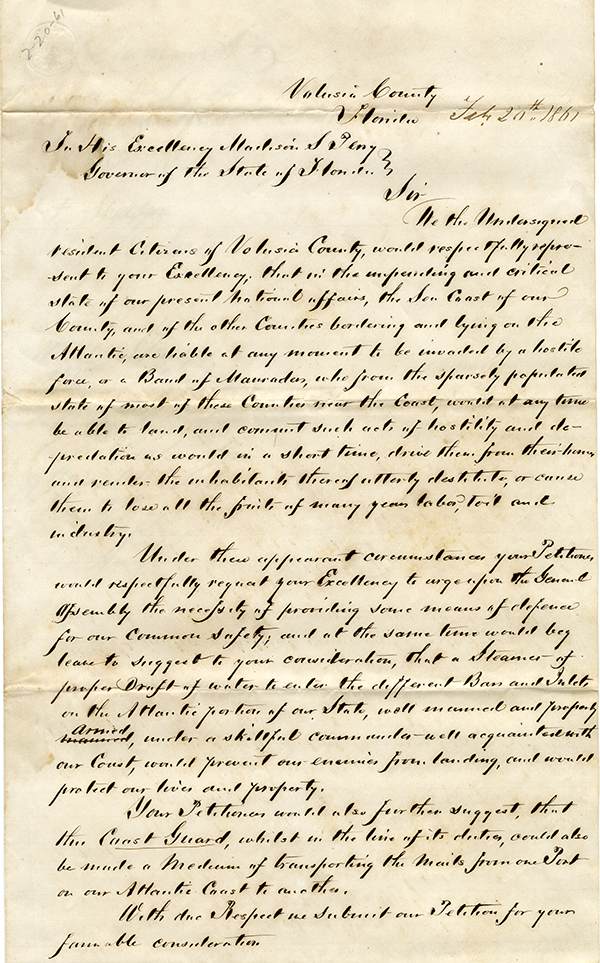 2-20-61
Volusia County
Florida Feb, 20th 1861
To His Excellency Madison S Perry
Governor of the State of Florida }
Sir
We the Undersigned
resident Citizens of Volusia County, would respectfully repre-
sent to your Excellency, that in the impending and critical
state of our present National affairs, the Sea Coast of our
County, and of the other Counties bordering and lying on the
Atlantic, are liable at any moment to be invaded by a hostile
force, or a Band of Mauraders, who from the sparsely populated
state of most of these Counties near the Coast, would at any time
be able to land, and commit such acts of hostility and de-
predation as would in a short time, drive them from their homes
and render the inhabitants thereof utterly destitute, or cause
them to lose all the fruits of many years labor, toil and
industry.
Under these appearant circumstances your Petitioners
would respectfully request your Excellency to urge upon the General
Assembly the necessity of providing some means of defence
for our Common safety; and at the same time would beg
leave to suggest to your consideration, that a Steamer of
proper Draft of water to enter the different Bars and Inlets
on the Atlantic portion of our State, well manned and properly
Armed
manned, under a skillful commander well acquainted with
our Coast, would prevent our enemies from landing, and would
protect our lives and property.
Your Petitioners would also further suggest, that
this Coast Guard, whilst in the line of its duties, could also
be made a Medium of transporting the Mails from one Port
on our Atlantic Coast to another.
With due Respect we submit our Petition for your
favorable consideration